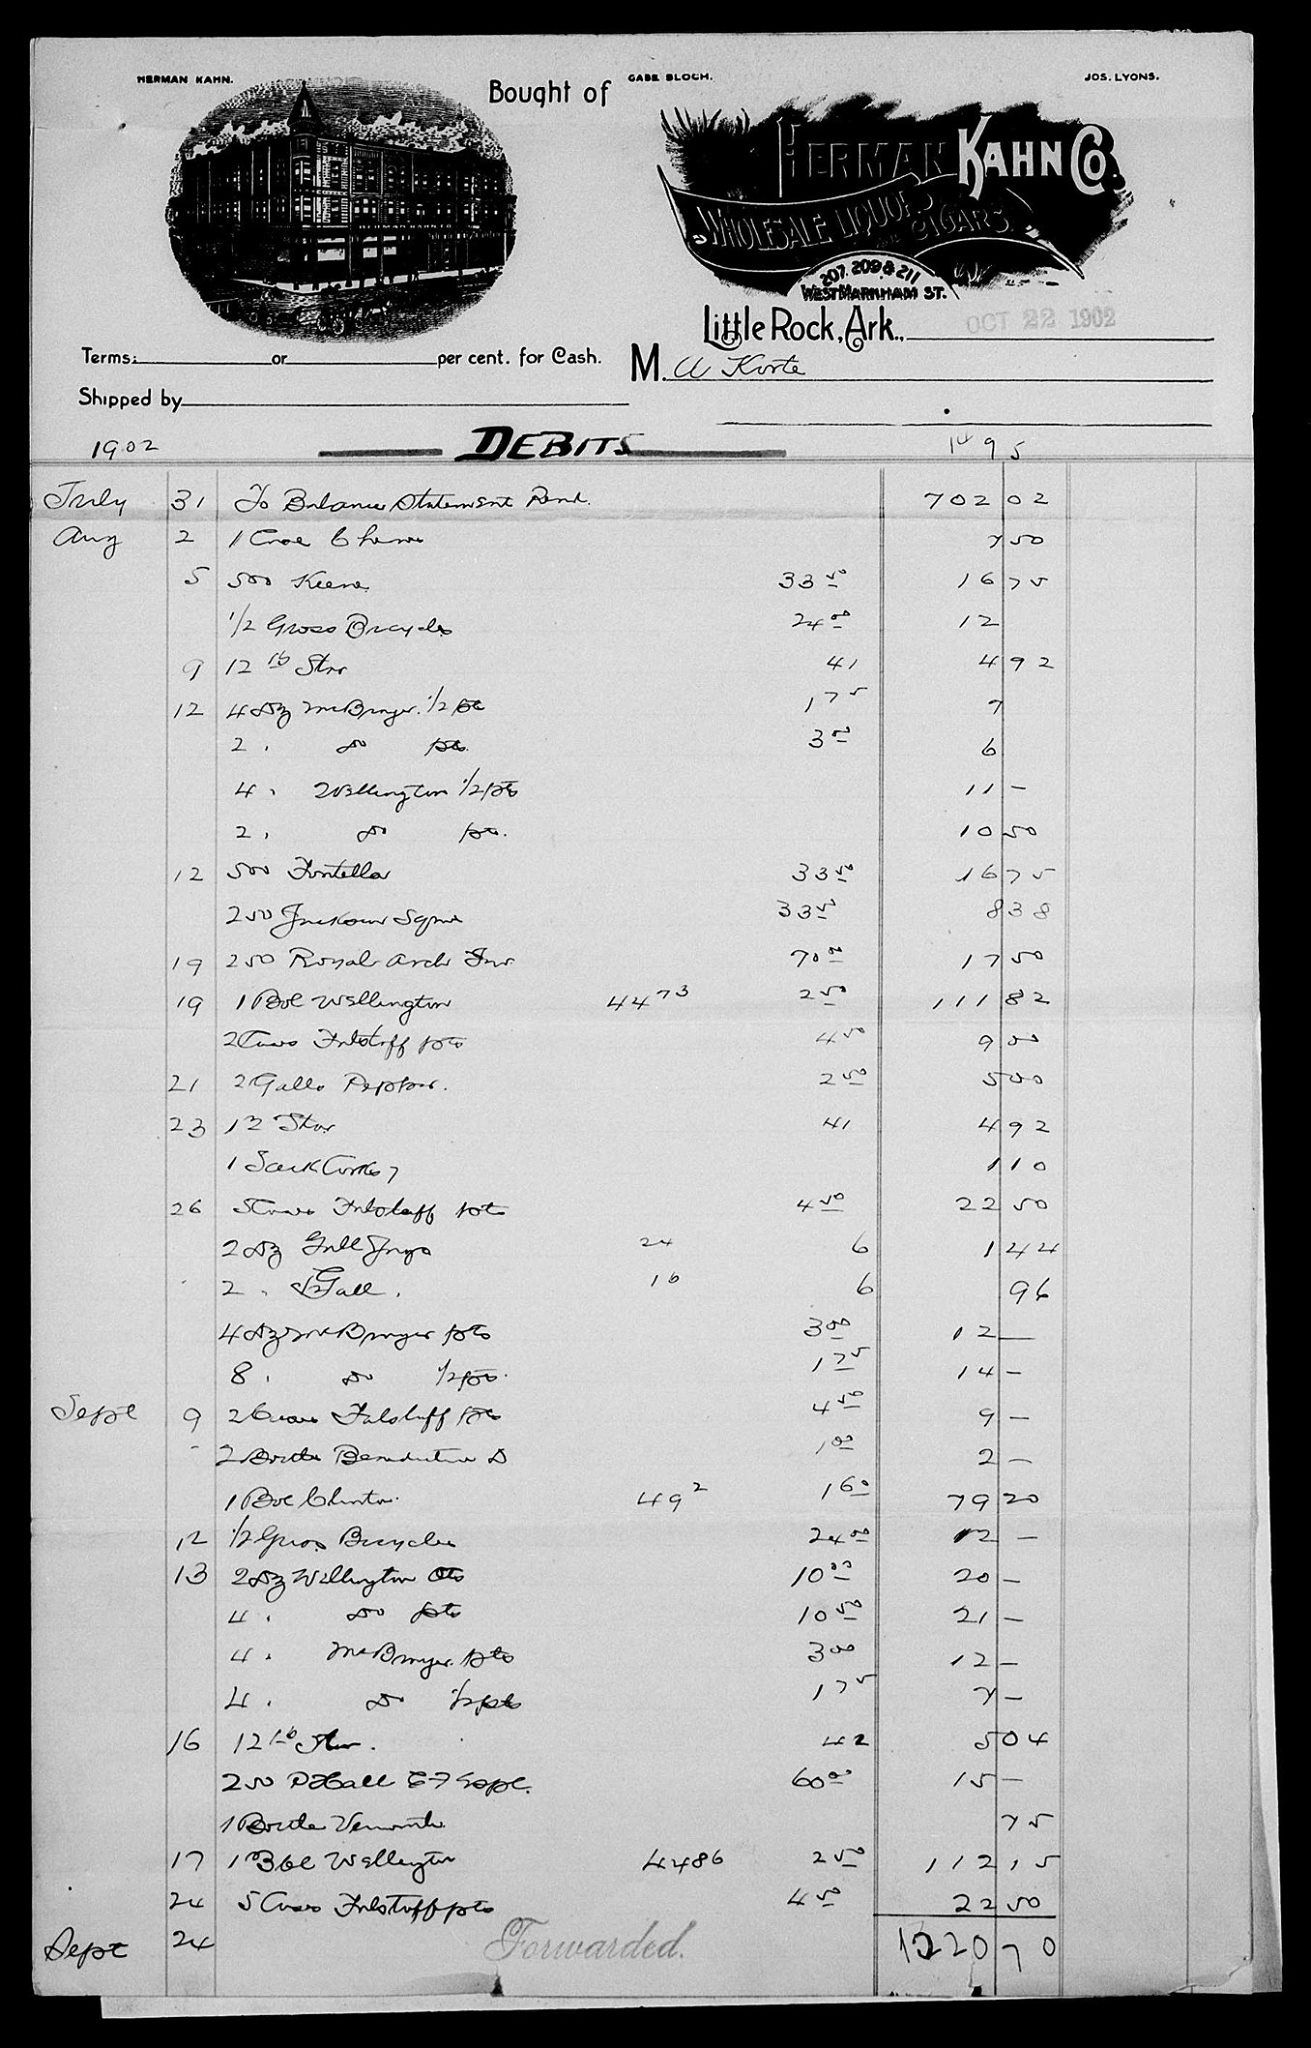 HERMAN KAHN. GABE BLOCH. JOS. LYONS.
Bought of
HERMAN KAHN CO
WHOLESALE LIQUORS CIGARS.
207. 209 & 211
WEST MARKHAM ST.
Little Rock, Ark., OCT 22 1902
Terms: or per cent. for Cash.
M. A Korte
Shipped by
1902 DEBITS 95
July 31 To Balance Statement Rend. 702 02
Aug 2 1 Case 7 50
5 500 Keene 33 50 16 75
1/2 Gross Bicycles 24 00 12
9 12 lb Star 41 4 92
12 4 Dz McBrayer 1/2 pts 1 75 7
2 " do pts. 3 00 6
4 " Wellington 1/2 pts 11 -
2 " do pts. 10 50
12 500 Fontella 33 50 16 75
250 Jackson Square 33 50 8 38
19 250 Royal Arch 70 00 17 50
19 1 Bbl Wellington 44 73 2 50 111 82
2 Cases Falstaff pts 4 50 9 00
21 2 Galls Pepper. 2 50 5 00
23 12 Star 41 4 92
1 Sack Corks 1 10
26 5 Cases Falstaff pts 4 50 22 50
2 Dz Gall Jugs 24 6 1 44
2 " 1/2 Gall " 16 6 96
4 Dz McBrayer pts 3 00 12 —
8 " do 1/2 pts. 1 75 14 -
Sept 9 2 Cases Falstaff pts 4 50 9 -
2 Bottles Benedictine D 1 00 2 -
1 Bbl Clinton. 49 2 1 60 79 20
12 1/2 Gross Bicycles 24 00 12 -
13 2 Dz Wellington Qts 10 00 20 -
4 " do pts 10 50 21 -
4 " McBrayer pts 3 00 12 -
4 " do 1/2 pts 1 75 7 -
16 12 lb Star. 42 5 04
250 Hall 60 00 15 -
1 Bottle Vermouth 75
17 1 Bbl Wellington 44 86 2 50 112 15
24 5 Cases Falstaff pts 4 50 22 50
Sept 24 Forwarded. 1320 70